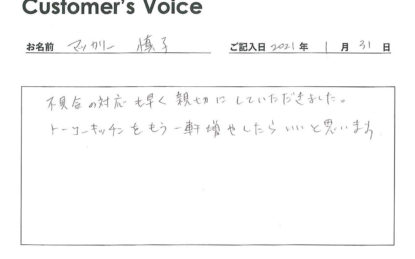 Customer's Voice
お名前 マッカリー 慎子 ご記入日 2021 年 1 月 31 日
不具合の対応も早く親切にしていただきました。
トーコーキッチンをもう一軒増やしたらいいと思います